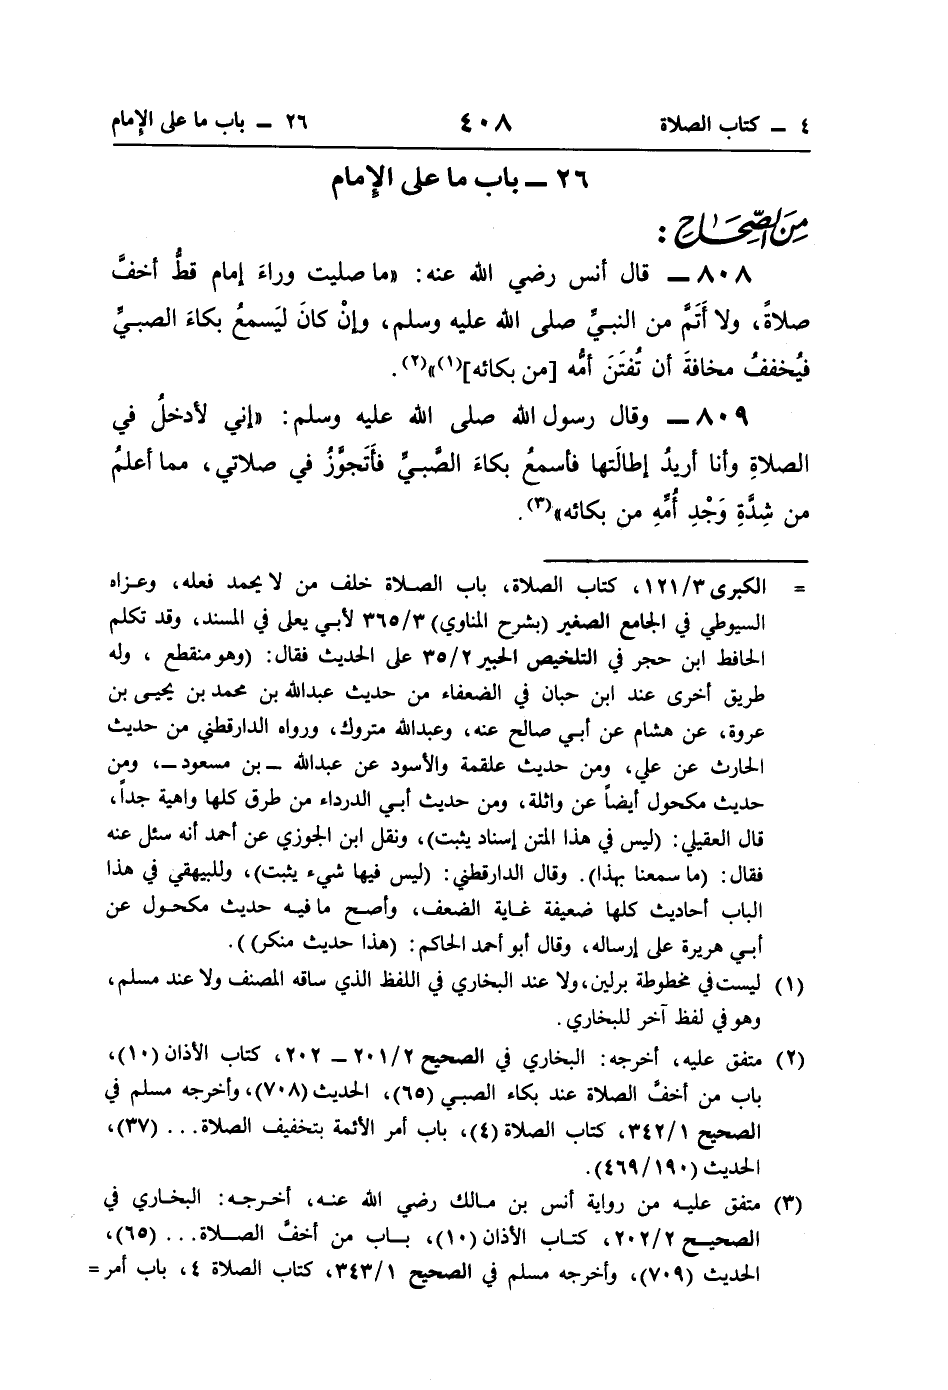 ٤ ــ كتاب الصلاة ٤٠٨ ٢٦ ــ باب ما على الإمام
٢٦ ــ باب ما على الإمام
مِنَ الصِّحَاحِ :
٨٠٨ ــ قال أنس رضي الله عنه: «ما صليت وراءَ إمام قطُّ أخفَّ
صلاةً، ولا أَتَمَّ من النبيِّ صلى الله عليه وسلم، وإنْ كانَ لَيَسمعُ بكاءَ الصبيِّ
فيُخففُ مخافةَ أن تُفتَنَ أمُّه [من بكائه](١)»(٢).
٨٠٩ ــ وقال رسول الله صلى الله عليه وسلم: «إني لأدخلُ في
الصلاةِ وأنا أريدُ إطالَتها فأسمعُ بكاءَ الصَّبيِّ فأَتَجوَّزُ في صلاتي، مما أعلمُ
من شِدَّةِ وَجْدِ أُمِّهِ من بكائه»(٣).
= الكبرى ١٢١/٣، كتاب الصلاة، باب الصلاة خلف من لا يحمد فعله، وعزاه
السيوطي في الجامع الصغير (بشرح المناوي) ٣٦٥/٣ لأبي يعلى في المسند، وقد تكلم
الحافظ ابن حجر في التلخيص الحبير ٣٥/٢ على الحديث فقال: (وهو منقطع، وله
طريق أخرى عند ابن حبان في الضعفاء من حديث عبدالله بن محمد بن يحيى بن
عروة، عن هشام عن أبي صالح عنه، وعبدالله متروك، ورواه الدارقطني من حديث
الحارث عن علي، ومن حديث علقمة والأسود عن عبدالله ــ بن مسعود ــ، ومن
حديث مكحول أيضاً عن واثلة، ومن حديث أبي الدرداء من طرق كلها واهية جداً،
قال العقيلي: (ليس في هذا المتن إسناد يثبت)، ونقل ابن الجوزي عن أحمد أنه سئل عنه
فقال: (ما سمعنا بهذا). وقال الدارقطني: (ليس فيها شيء يثبت)، وللبيهقي في هذا
الباب أحاديث كلها ضعيفة غاية الضعف، وأصح ما فيه حديث مكحول عن
أبي هريرة على إرساله، وقال أبو أحمد الحاكم: (هذا حديث منكر)).
(١) ليست في مخطوطة برلين، ولا عند البخاري في اللفظ الذي ساقه المصنف ولا عند مسلم،
وهو في لفظ آخر للبخاري.
(٢) متفق عليه، أخرجه: البخاري في الصحيح ٢٠١/٢ ــ ٢٠٢، كتاب الأذان (١٠)،
باب من أخفَّ الصلاة عند بكاء الصبي (٦٥)، الحديث (٧٠٨)، وأخرجه مسلم في
الصحيح ٣٤٢/١، كتاب الصلاة (٤)، باب أمر الأئمة بتخفيف الصلاة... (٣٧)،
الحديث (٤٦٩/١٩٠).
(٣) متفق عليه من رواية أنس بن مالك رضي الله عنه، أخرجه: البخاري في
الصحيح ٢٠٢/٢، كتاب الأذان (١٠)، باب من أخفَّ الصلاة... (٦٥)،
الحديث (٧٠٩)، وأخرجه مسلم في الصحيح ٣٤٣/١، كتاب الصلاة ٤، باب أمر =